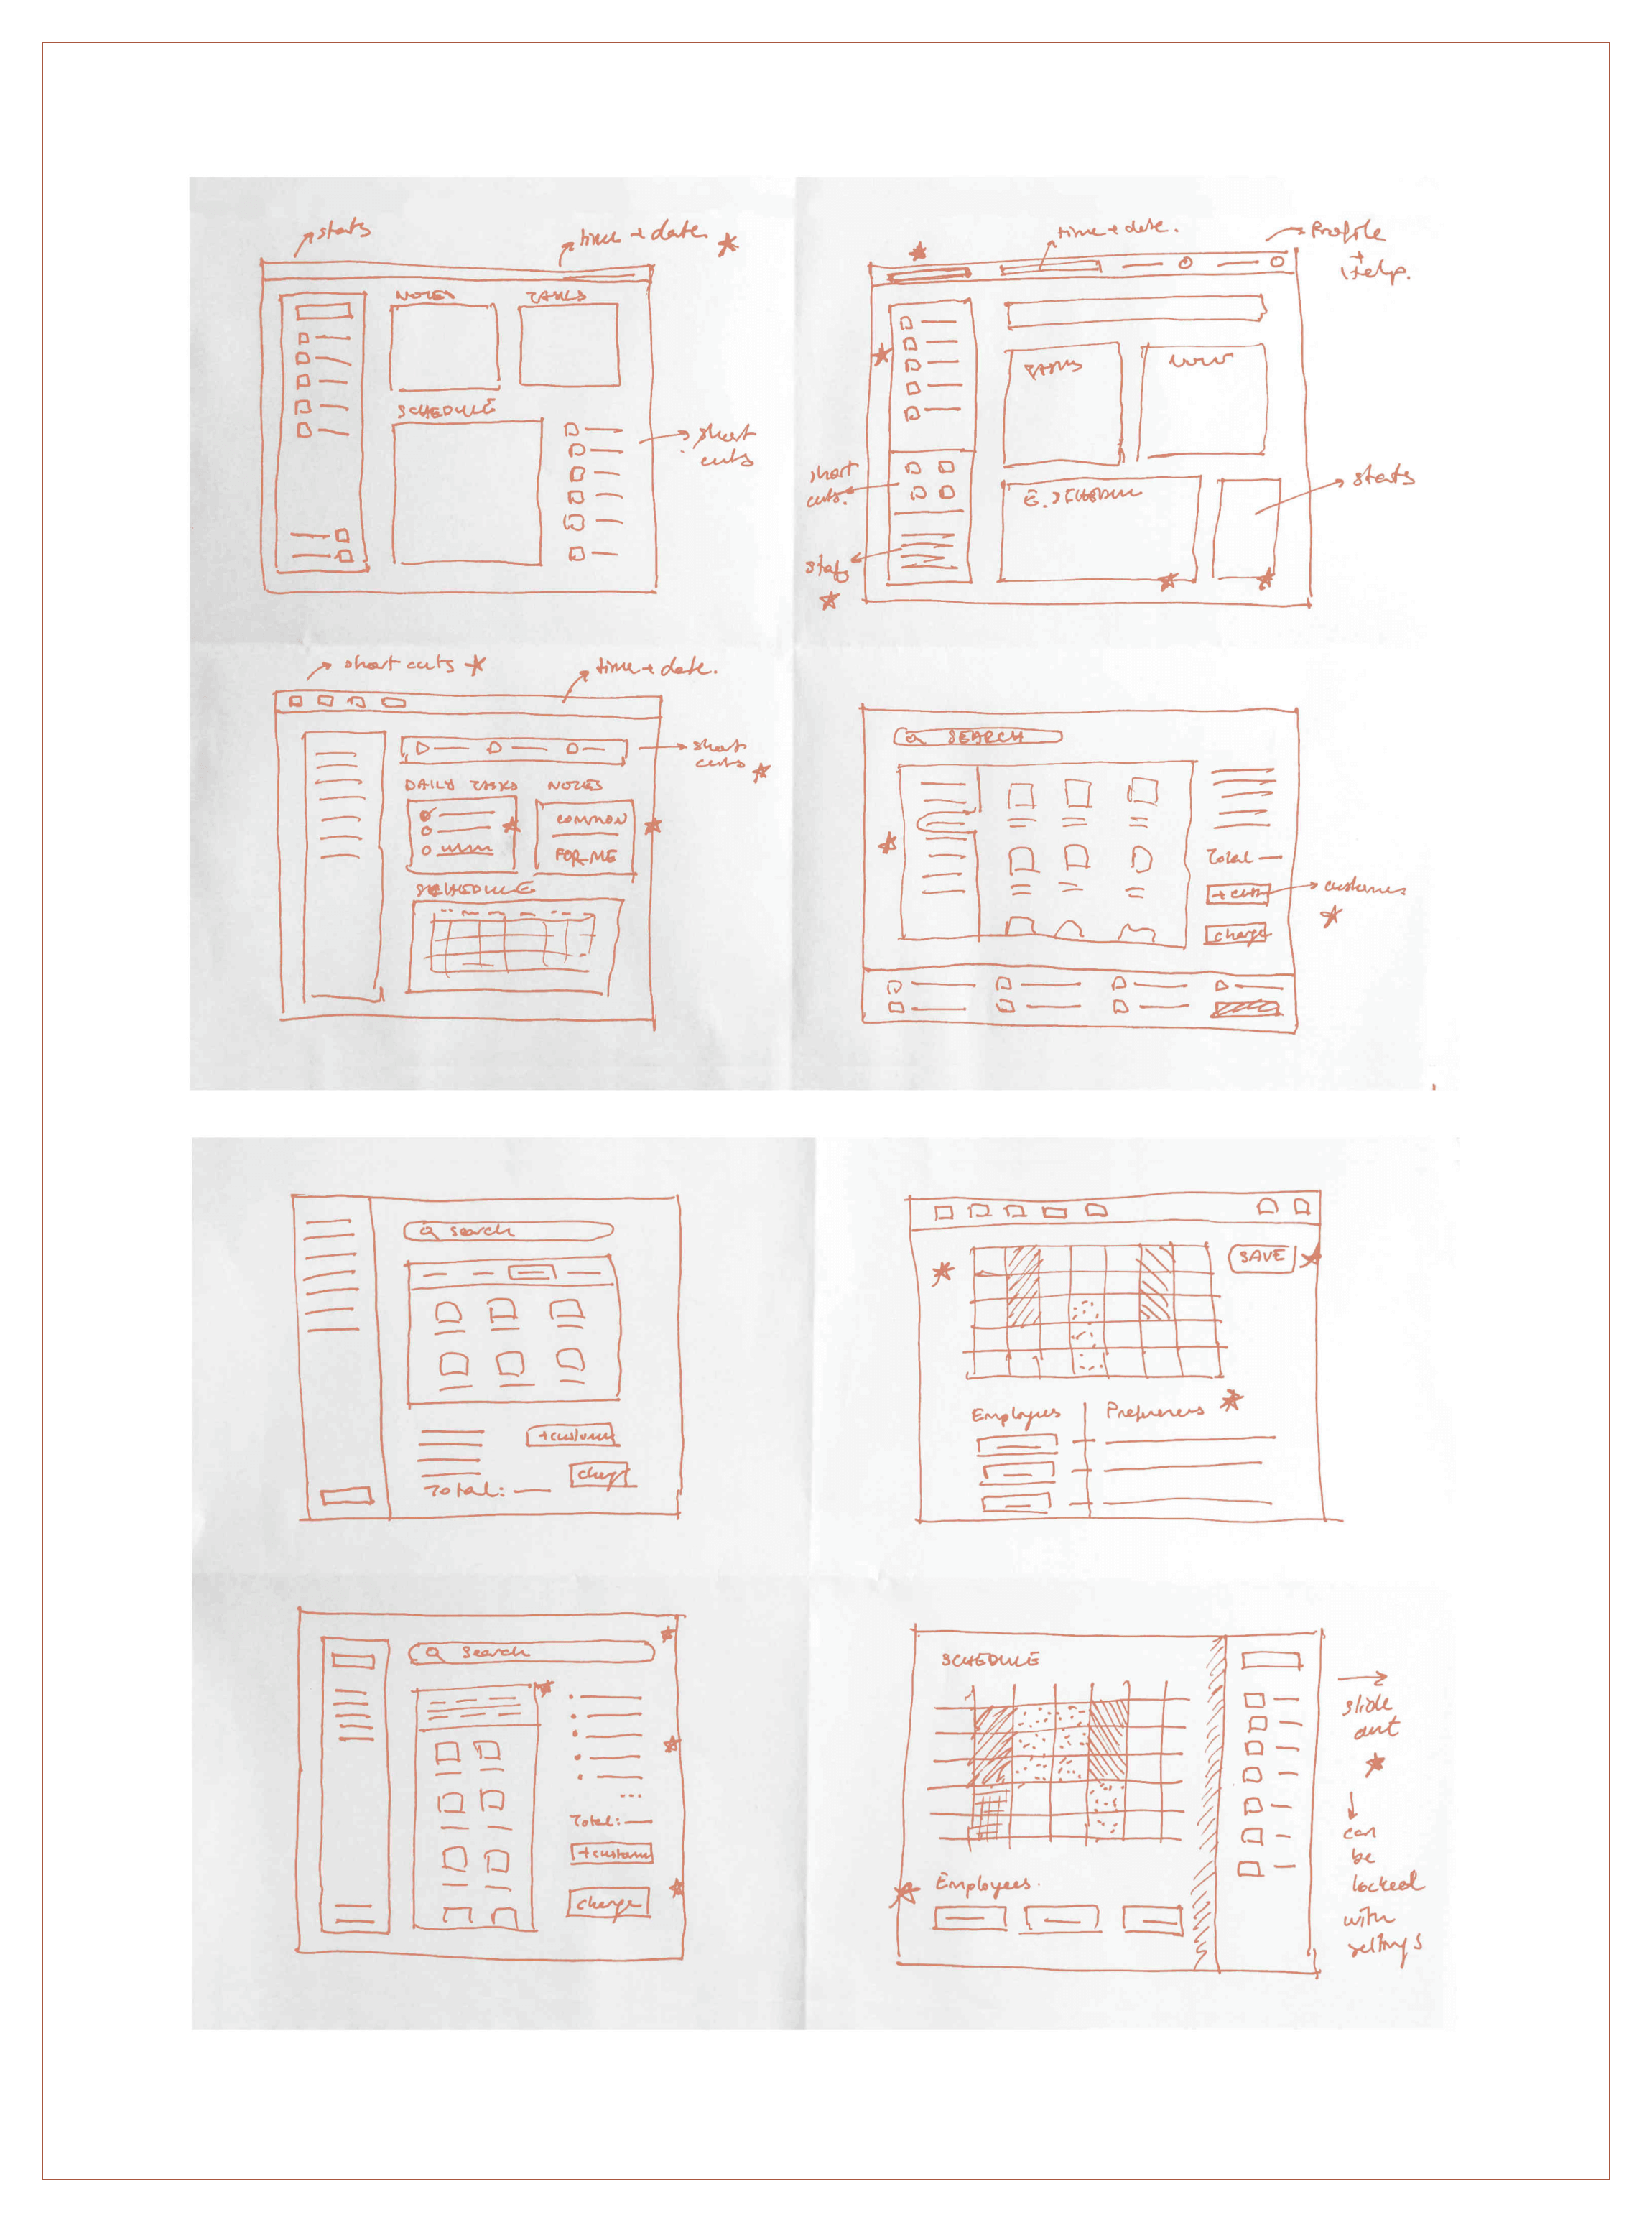 stats
time + date
NOTES
TASKS
SCHEDULE
short
cuts
time + date.
Profile
+
Help.
TASKS
short
cuts.
E. SCHEDULE
stats
short cuts
time + date.
short
cuts
DAILY TASKS
NOTES
COMMON
FOR ME
SCHEDULE
SEARCH
Total
customer
charge
search
+ custom
Total:
SAVE
Employees
Preferences
Search
Total:
+ custom
charge
SCHEDULE
Employees.
slide
out
can
be
locked
with
settings